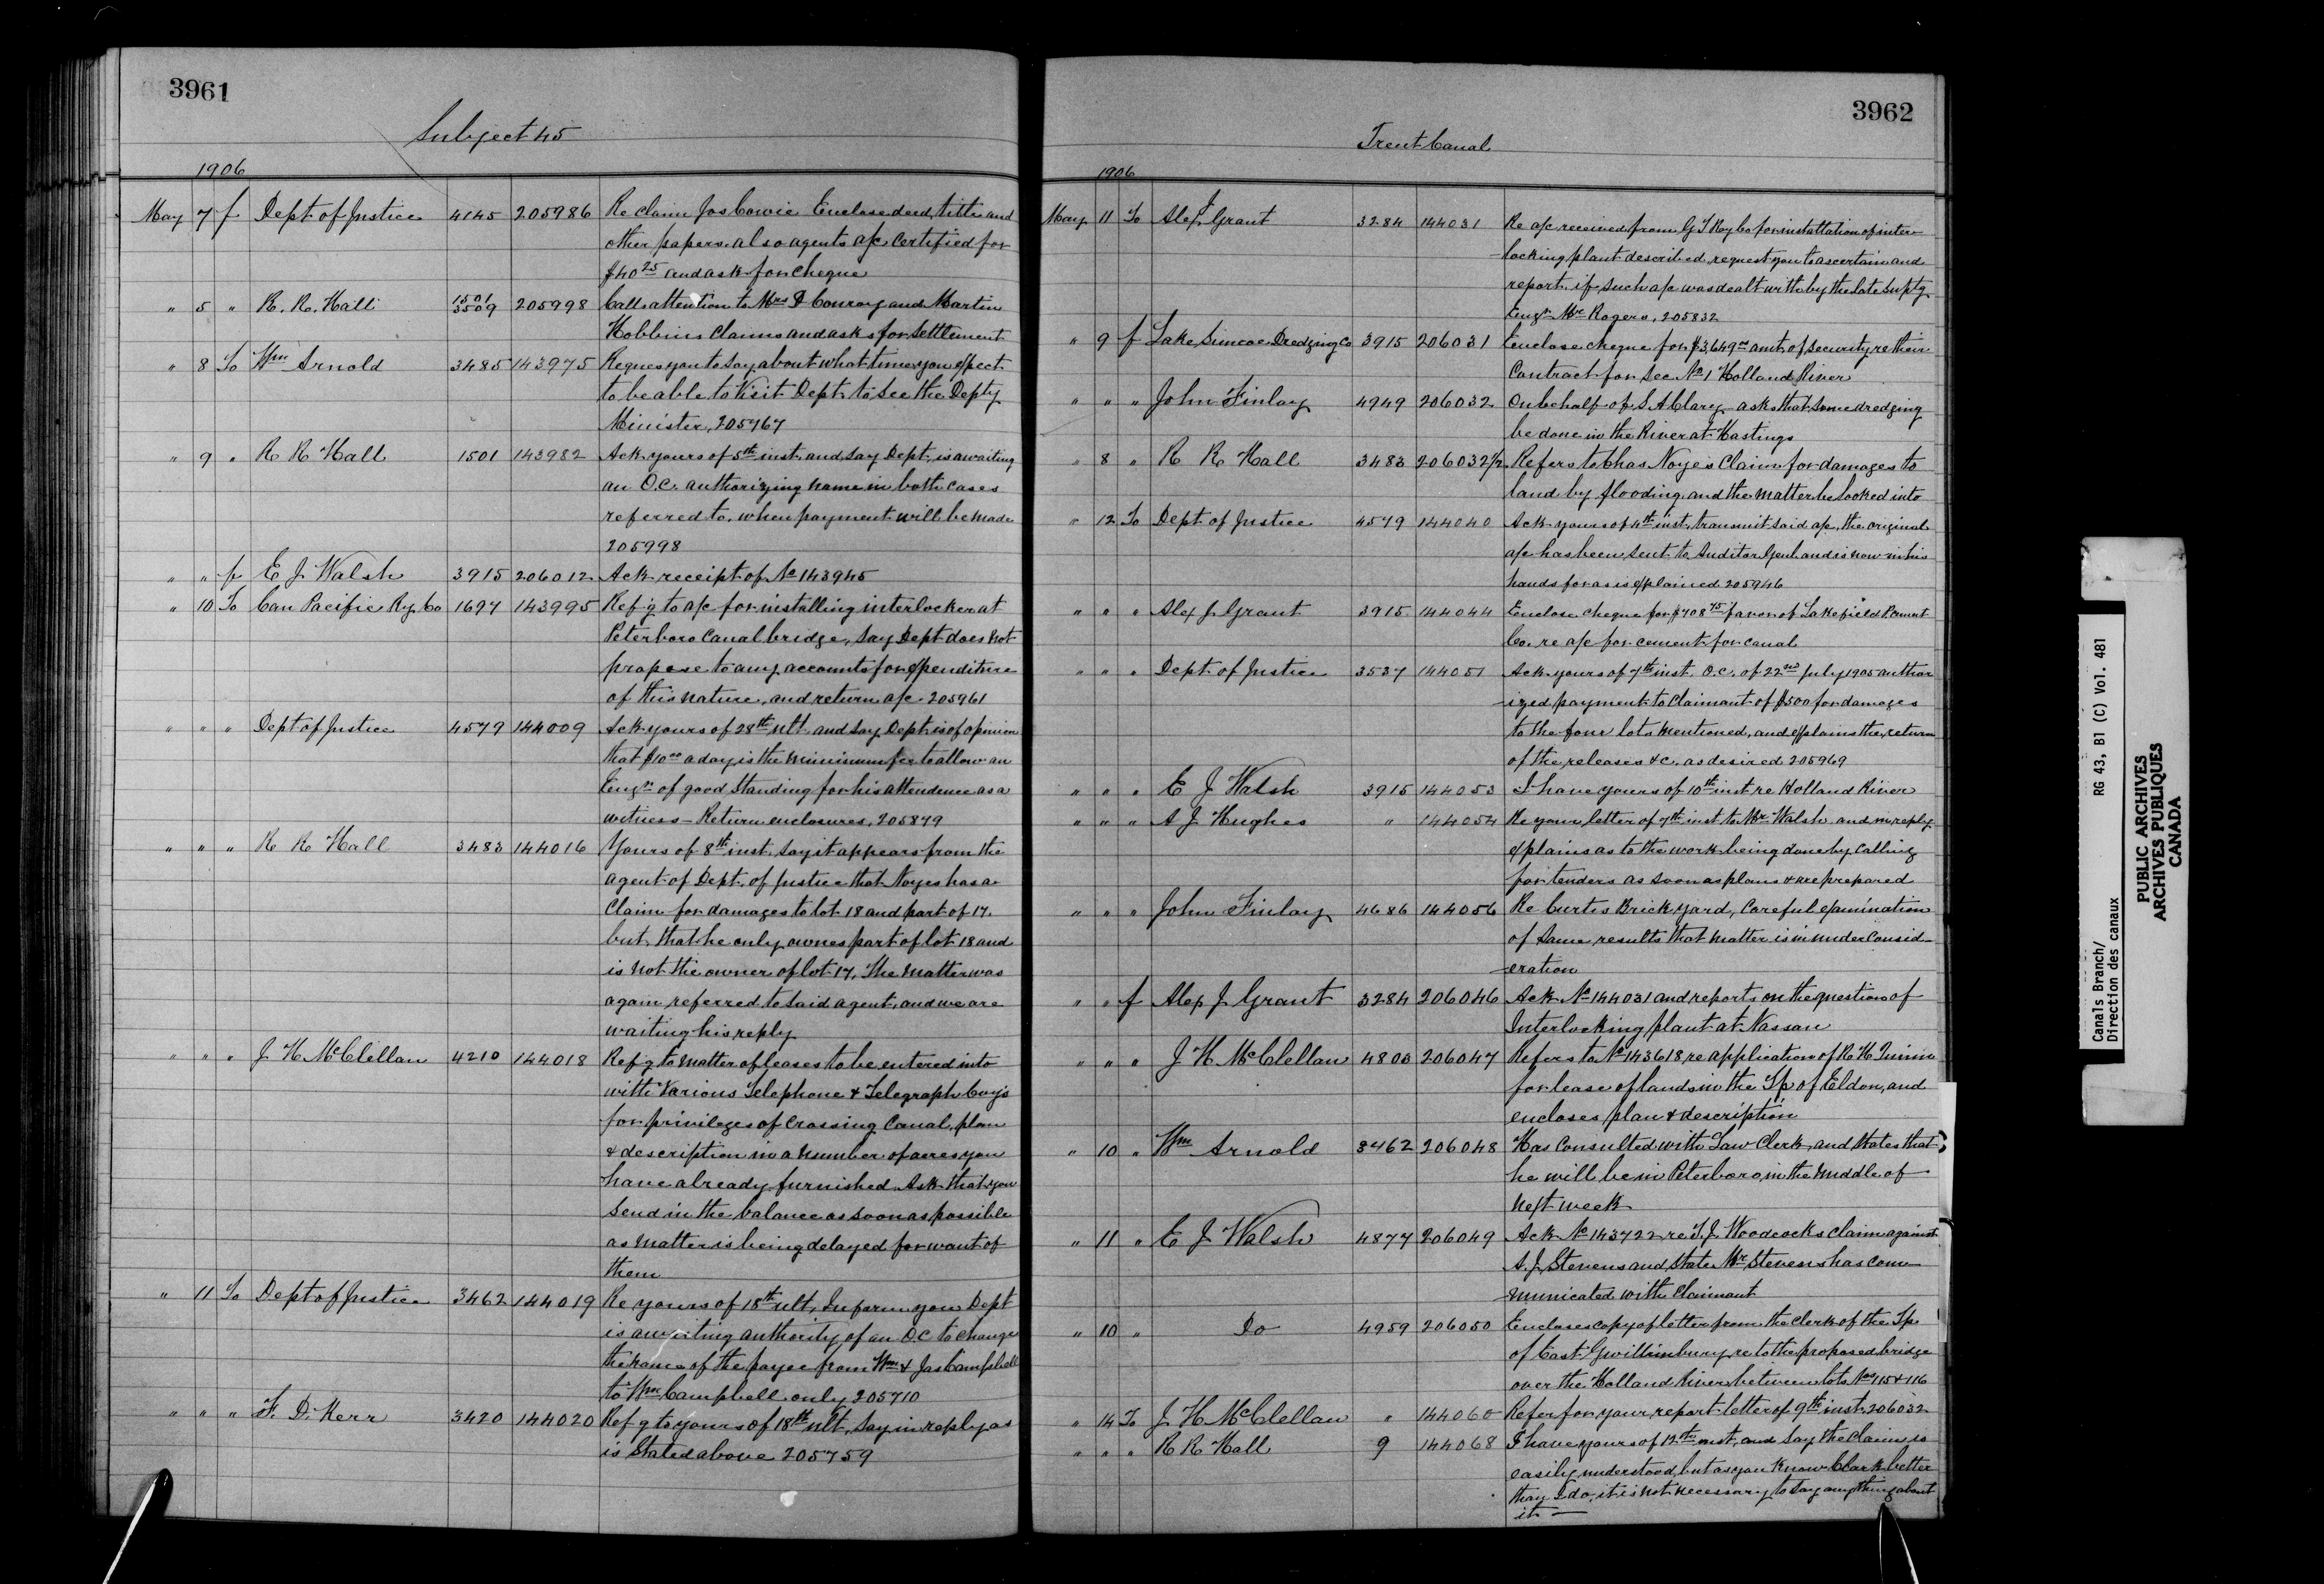 3961
Subject 45
1906
May 7 f Dept of Justice 4145 205986 Re claim Jos Cowie Enclose deed, title and
other papers also agents a/c certified for
$40 25 and ask for cheque
" 5 " R. R. Hall 1501 3509 205998 Calls attention to Mrs P Conroy and Martin
Hobbins claims and asks for Settlement
" 8 To Wm Arnold 3485 143975 Reques you to say about what time you expect
to be able to Visit Dept. to see the Depty
Minister, 205767
" 9 " R R Hall 1501 143982 Ack yours of 5th inst. and say Dept. is awaiting
an O.C. authorizing name in both cases
referred to, when payment will be made
205998
" " f E J Walsh 3915 206012 Ack receipt of No 143945
" 10 To Can Pacific Ry. Co 1697 143995 Ref'g to a/c for installing interlocker at
Peterboro Canal bridge, say Dept does not
propose to any accounts for expenditure
of this nature, and return a/c 205961
" " " Dept of Justice 4579 144009 Ack yours of 28th ult. and say Dept is of opinion
that $10 00 a day is the minimum fee to allow an
Engr of good Standing for his attendence as a
witness - Return enclosures, 205879
" " " R R Hall 3483 144016 Yours of 8th inst. say it appears from the
agent of Dept. of Justice that Noyes has a
Claim for damages to lot 18 and part of 17.
but that he only ownes part of lot 18 and
is not the owner of lot 17. The matter was
again referred to said agent, and we are
waiting his reply
" " " J H McClellan 4210 144018 Ref'g to matter of leases to be entered into
with Various Telephone & Telegraph Coy's
for privileges of Crossing Canal, plan
& description in a number of acres you
have already furnished. Ask that you
send in the balance as soon as possible
as matter is being delayed for want of
them
" 11 To Dept of Justice 3462 144019 Re yours of 18th ult, Inform you Dept
is awaiting authority of an O.C. to change
the name of the payee from Wm & Jas Campbell
to Wm Campbell only 205710
" " " F. D. Kerr 3420 144020 Ref'g to yours of 18th ult, Say in reply as
is Stated above 205759
3962
Trent Canal
1906
May 11 To Alex J Grant 3284 144031 Re a/c received from G T Ry Co for installation of inter-
-locking plant described, request you to ascertain and
report, if such a/c was dealt with by the late Suptg
Engr Mr Rogers, 205832
" 9 f Lake Simcoe Dredging Co 3915 206031 Enclose cheque for $3,649 00 amt. of security re their
Contract for Sec No 1 Holland River
" " " John Finlay 4949 206032 On behalf of S A Clarey asks that some dredging
be done in the River at Hastings
" 8 " R R Hall 3483 206032 1/2 Refers to Chas Noye's Claim for damages to
land by flooding and the matter be looked into
" 12 To Dept of Justice 4579 144040 Ack yours of 4th inst, transmit said a/c, the original
a/c has been sent to Auditor Genl and is now in his
hands for as is explained 205946
" " " Alex J Grant 3915 144044 Enclose cheque for $708 75 favor of Lakefield P. Cement
Co. re a/c for cement for canal
" " " Dept of Justice 3537 144051 Ack yours of 7th inst. O.C. of 22nd July 1905 author
-ized payment to Claimant of $500 for damages
to the four lots mentioned, and explains the return
of the releases &c. as desired 205969
" " " E J Walsh 3915 144053 I have yours of 10th inst re Holland River
" " " A J Hughes " 144054 Re your letter of 7th inst to Mr Walsh and in reply
explains as to the work being done by calling
for tenders as soon as plans & are prepared
" " " John Finlay 4686 144056 Re Curtis Brick yard, Careful examination
of same results that matter is in under consid-
-eration
" " f Alex J Grant 3284 206046 Ack No 144031 and reports on the question of
Interlocking plant at Nassau
" " " J H McClellan 4803 206047 Refers to No 143618, re application of R H Quinn
for lease of lands in the Tp. of Eldon, and
encloses plan & description
" 10 " Wm Arnold 3462 206048 Has consulted with Law Clerk and States that
he will be in Peterboro, in the middle of
next week
" 11 " E J Walsh 4877 206049 Ack No 143722 re T. J. Woodcocks claim against
A. J. Stevens and State Mr Stevens has com-
-municated with Claimant
" 10 " Do 4959 206050 Encloses copy of letter from the Clerk of the Tp.
of East Gwillimbury re to the proposed bridge
over the Holland River between lots Nos 115 & 116
" 14 To J H McClellan " 144060 Refer for your report letter of 9th inst. 206032
" " " R R Hall 9 144068 I have yours of 12th inst, and say the Claim is
easily understood, but as you Know Clark better
than I do, it is not necessary to say anything about
it —
Canals Branch/
Direction des canaux
RG 43, B1 (C) Vol. 481
PUBLIC ARCHIVES
ARCHIVES PUBLIQUES
CANADA